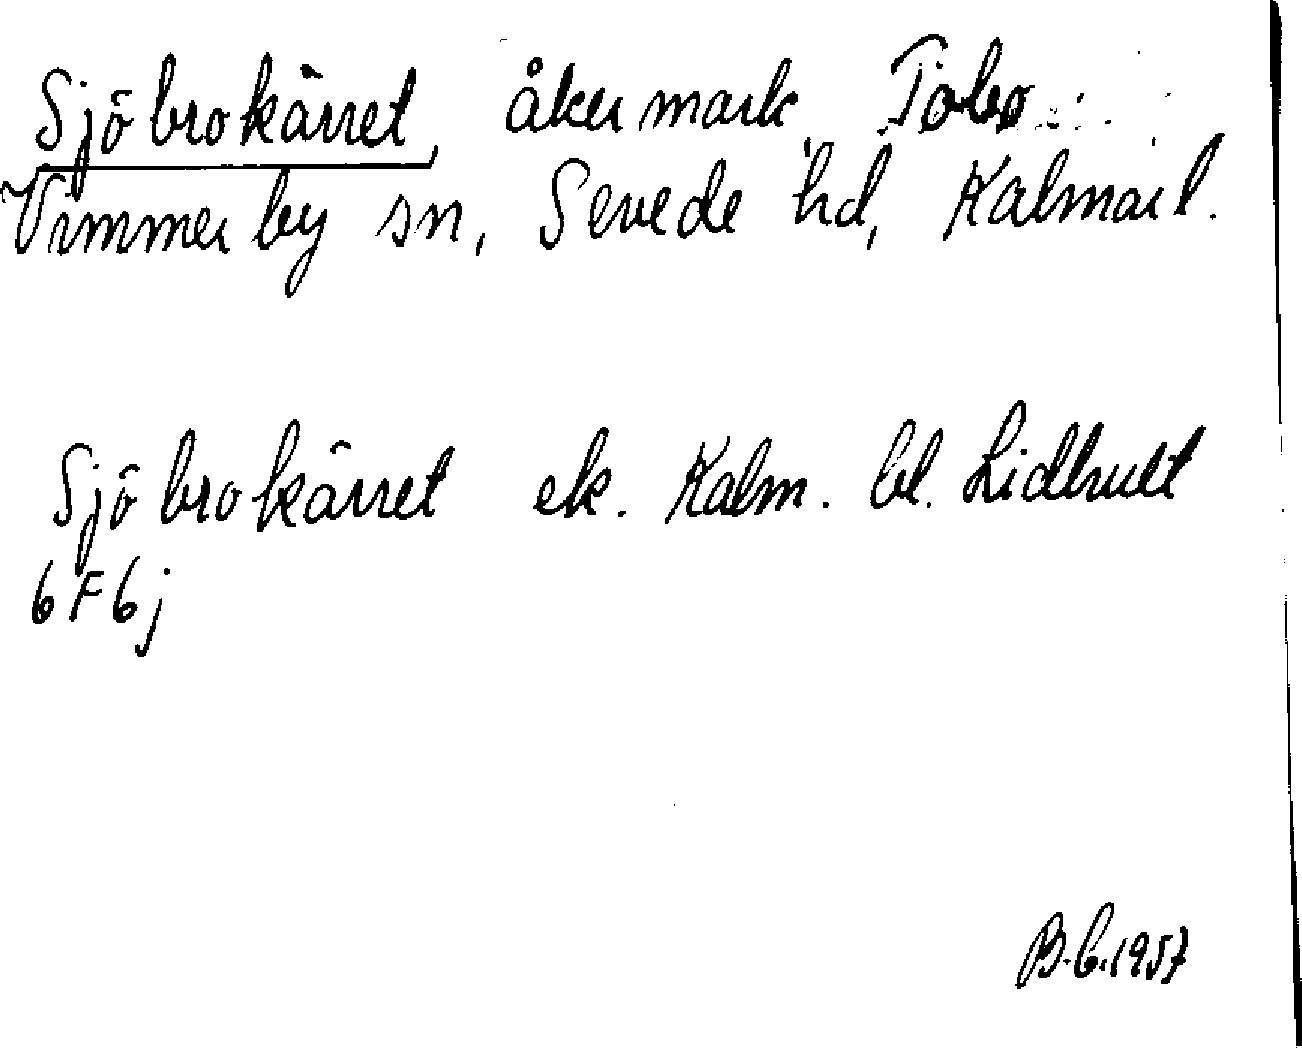 Sjöbrokärret, åkermark, Tobo
Vimmerby sn, Sevede hd, Kalmar l.
Sjöbrokärret ek. Kalm. bl. Lidhult
6F6j
B.C. 1957